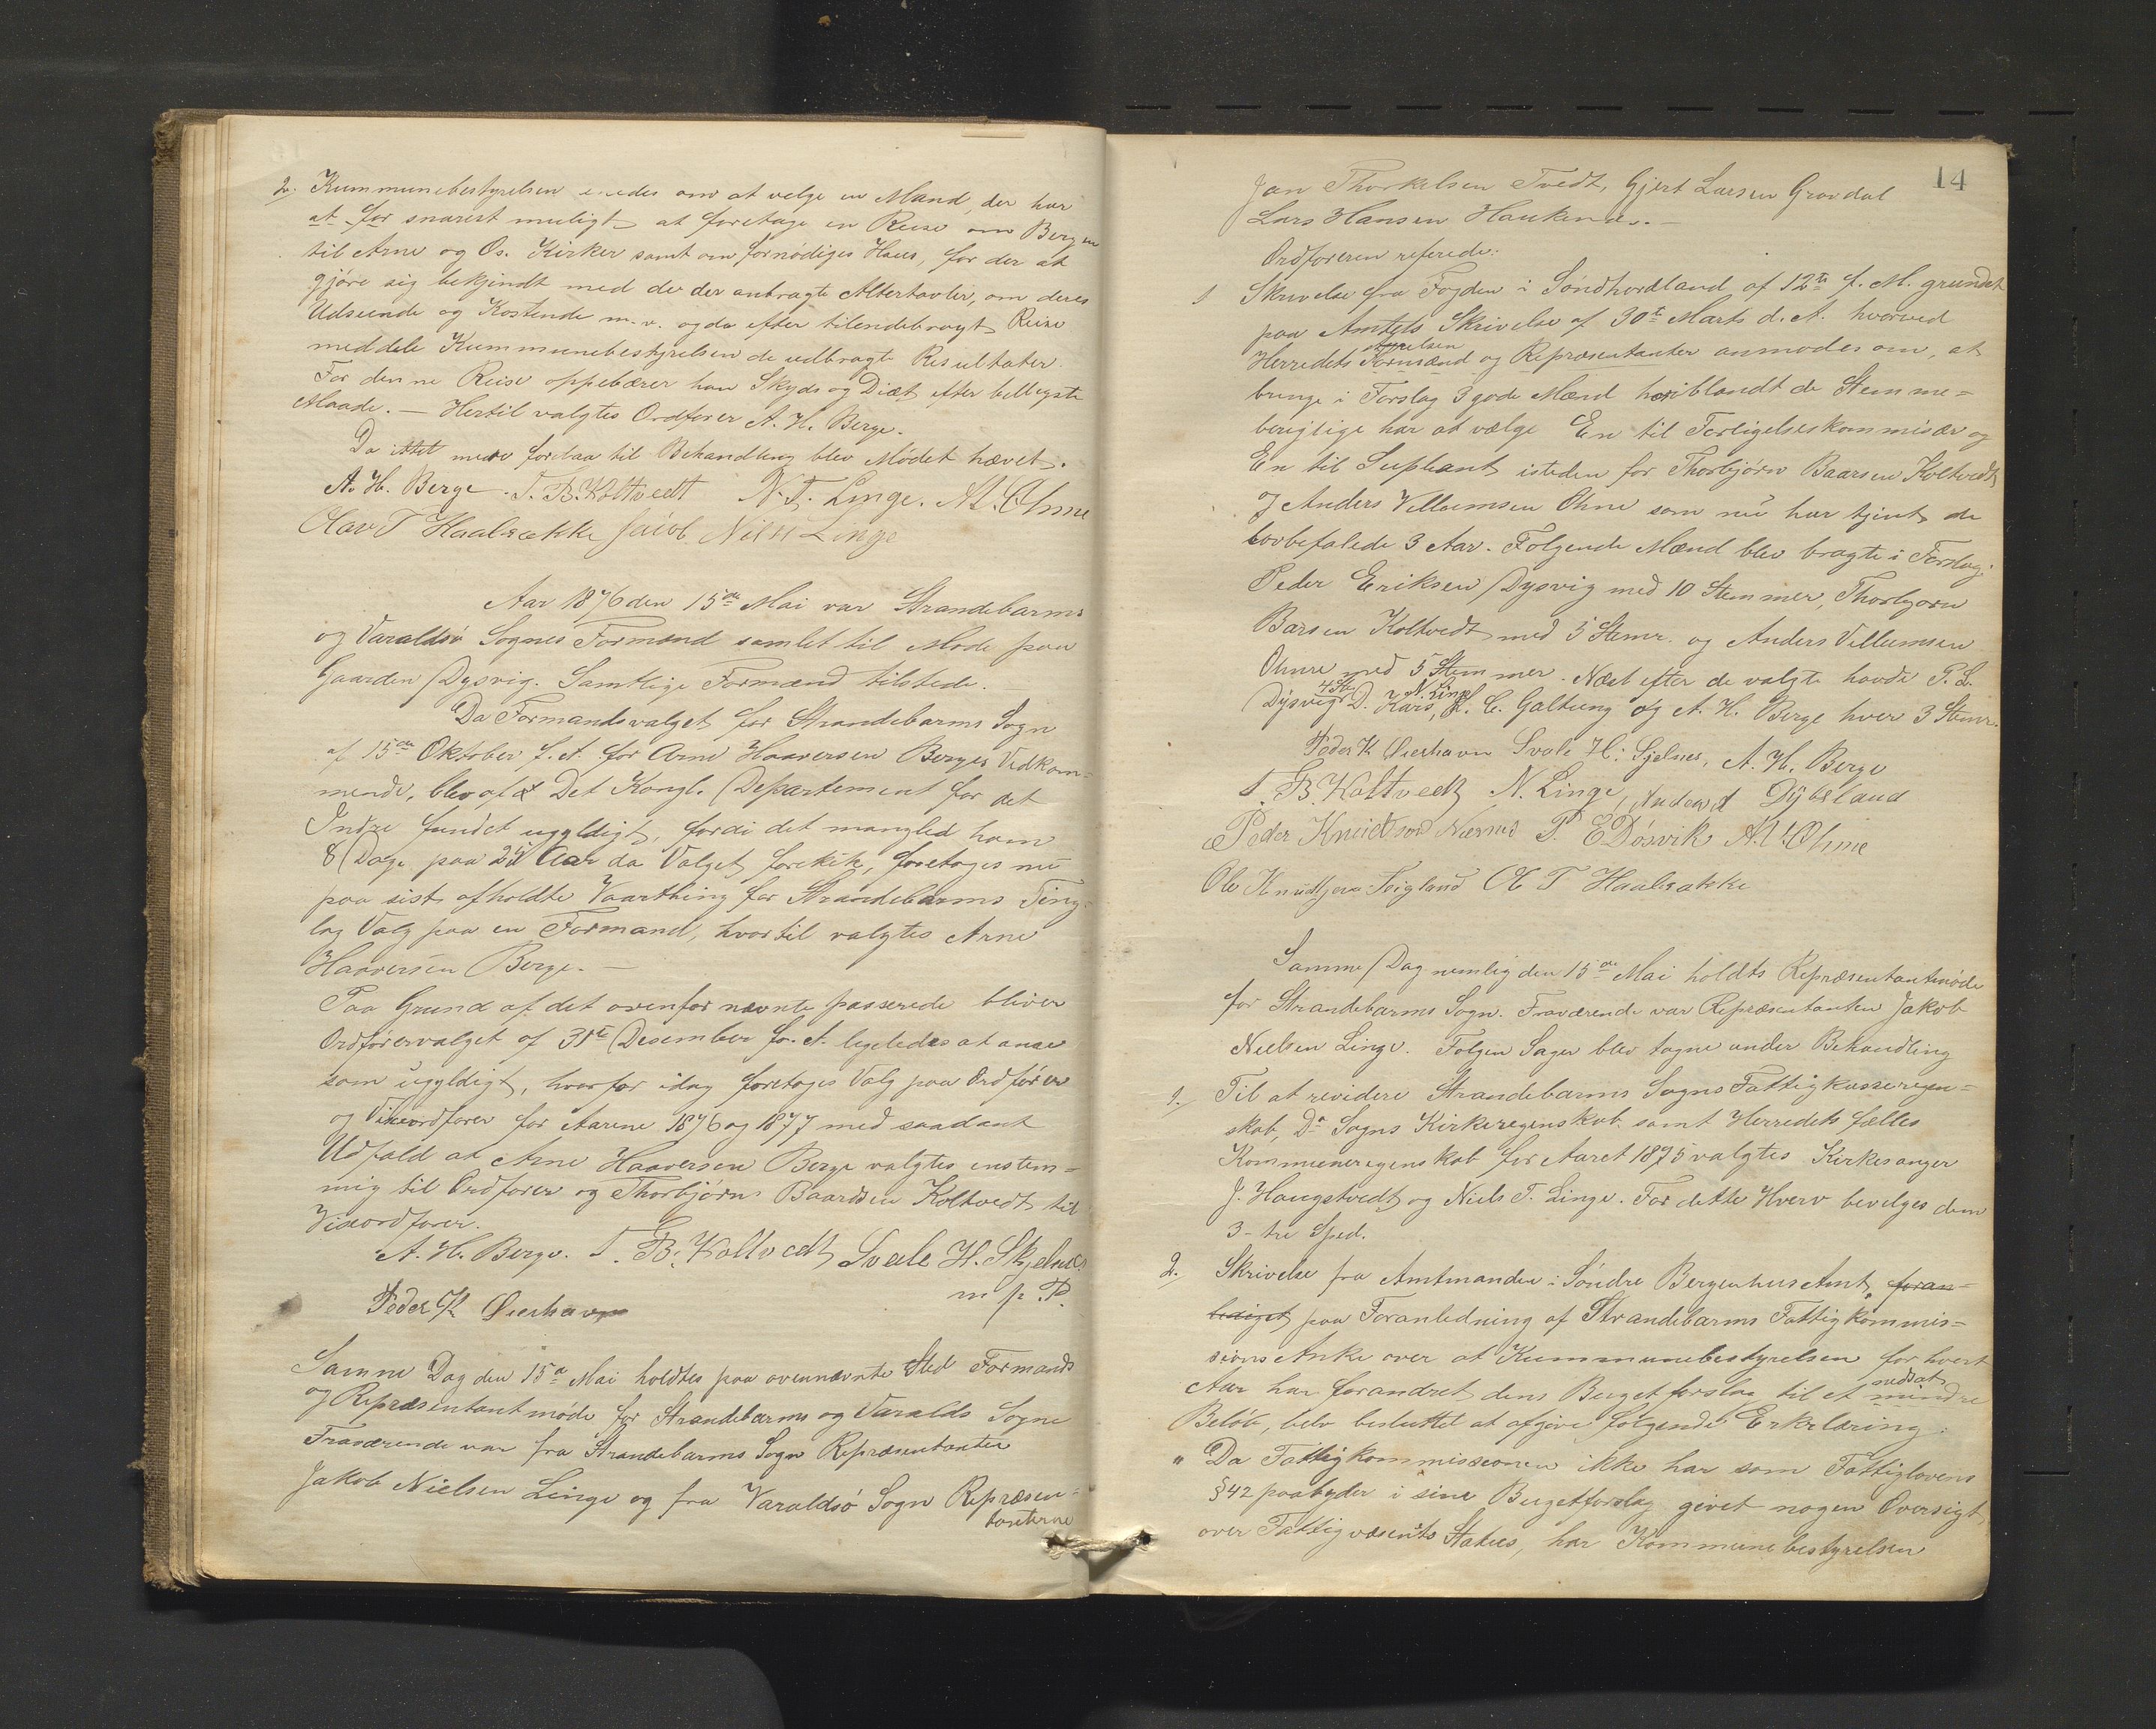 2. Kummunebestyrelsen enedes om at velge en Mand, der har
at for snarest muligt at foretage en Reise om Bergen
til Arne og Os. Kirker samt om fornødiges Haus, for der at
gjøre sig bekjendt med de der anbragte Altertavler, om deres
Udseende og Kostende m.v. og da efter tilendebragt Reise
meddele Kummunebestyrelsen de udbragte Resultater.
For denne Reise oppebærer han Skyds og Diæt efter billigste
Maade. — Hertil valgtes Ordfører A. H. Berge.
Da intet mere forelaa til Behandling blev Mødet hævet.
A. H. Berge. T. B. Koltvedt N. T. Linge. A. V. Ohme
Olav T Haalrække Jaiob Nilss Linge
Aar 1876 den 15de Mai var Strandebarms
og Varaldsø Sognes Formænd samlet til Møde paa
Gaarden Dysvig. Samtlige Formænd tilstede.
Da Formandsvalget for Strandebarms Sogn
af 15de Oktober f. A. for Arne Haaversen Berges Vedkom-
mende, blev af Det Kongl. Departement for det
Indre fundet ugyldigt, fordi det mangled ham
8 Dage paa 25 Aar da Valget foregik, foretoges nu
paa sist afholdte Vaarthing for Strandebarms Ting-
lag Valg paa en Formand, hvortil valgtes Arne
Haaversen Berge. —
Paa Grund af det ovenfor nævnte passerede bliver
Ordførervalget af 31te Desember f. A. ligeledes at anse
som ugyldigt, hvorfor idag foretoges Valg paa Ordfører
og Viseordfører for Aarene 1876 og 1877 med saadant
Udfald at Arne Haaversen Berge valgtes enstem-
mig til Ordfører og Thorbjørn Baardsen Koltvedt til
Viseordfører.
A. H. Berge. T. B. Koltvedt Svale H. Skjelnes
m. p. P.
Peder K Øierhavn
Samme Dag den 15de Mai holdtes paa ovennævnte Sted Formands
og Repræsentantmøde for Strandebarms og Varalds Sogne
Fraværende var fra Strandebarms Sogn Repræsentanten
Jakob Nielsen Linge og fra Varaldsø Sogn Repræsen-
tanterne
14
Jan Thorkelsen Tvedt, Gjert Larsen Gravdal
Lars Hansen Haukenæs. —
Ordføreren referede:
1 Skrivelse fra Fogden i Søndhordland af 12te f. M. grundet
paa Amtets Skrivelse af 30te Marts d. A. hvorved
styrelsen
Herredets Formænd og Repræsentanter anmodes om, at
bringe i Forslag 3 gode Mænd hvoriblandt de Stemme-
berigtige har at vælge En til Forligelseskommisær og
En til Supleant isteden for Thorbjørn Baarsen Koltvedt
og Anders Villumsen Ohne som nu har tjent de
lovbefalede 3 Aar. Følgende Mænd blev bragte i Forslag:
Peder Eriksen Dysvig med 10 Stemmer, Thorbjørn
Barsen Koltvedt med 5 Stemr. og Anders Villumsen
Ohnre med 5 Stemmer. Næst efter de valgte havde P. L.
4 St. N. Linge
Dysvig D. Kars, H. C. Galtung og A. H. Berge hver 3 Stemr.
Peder K Øierhavn Svale H. Sjelnes, A. H. Berge
T. B. Koltvedt N. Linge, Anders A Dybsland
Peder Knudtson Nærnes P. E Døsvik A. V. Ohme
Ole Knudtsen Teigland O T Haalrække
Samme Dag nemlig den 15de Mai holdts Repræsentantmøde
for Strandebarms Sogn. Fraværende var Repræsentanten Jakob
Nielsen Linge. Følgen Sager blev tagne under Behandling
1. Til at revidere Strandebarms Sogns Fattigkasseregen-
skab, Do Sogns Kirkeregenskab samt Herredets fælles
Kommuneregenskab for Aaret 1875 valgtes Kirkesanger
J. Haugstvedt og Niels T. Linge. For dette Hverv bevilges dem
3 - tre Spd.
2. Skrivelse fra Amtmanden i Søndre Bergenhus Amt, foran-
lediget paa Foranledning af Strandebarms Fattigkommis-
sions Anke over at Kummunebestyrelsen for hvert
nedsat
Aar har forandret dens Bugetforslag til et mindre
Beløb, belv besluttet at afgive følgende Erklæring:
" Da Fattigkommissionen ikke har som Fattiglovens
§ 42 paabyder i sine Bugetforslag givet nogen Oversigt,
over Fattigvæsents Status, har Kommunebestyrelsen